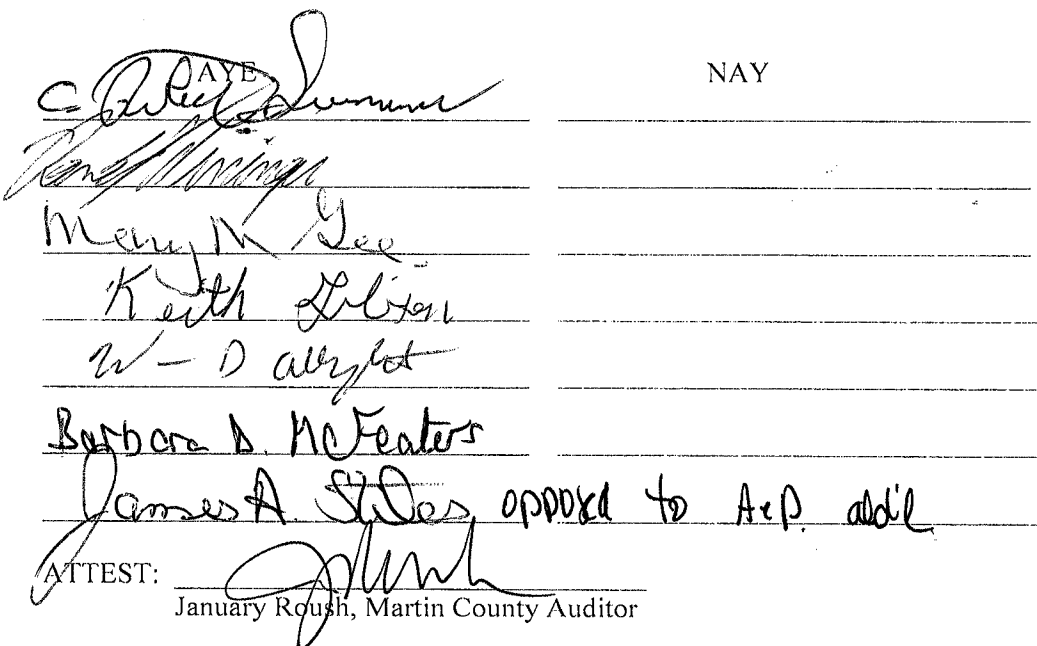 AYE NAY
Mary M Gee
Keith Gibson
W - D Albright
Barbara D. McFeaters
James A. Stiles opposed to A&P. add'l
ATTEST:
January Roush, Martin County Auditor